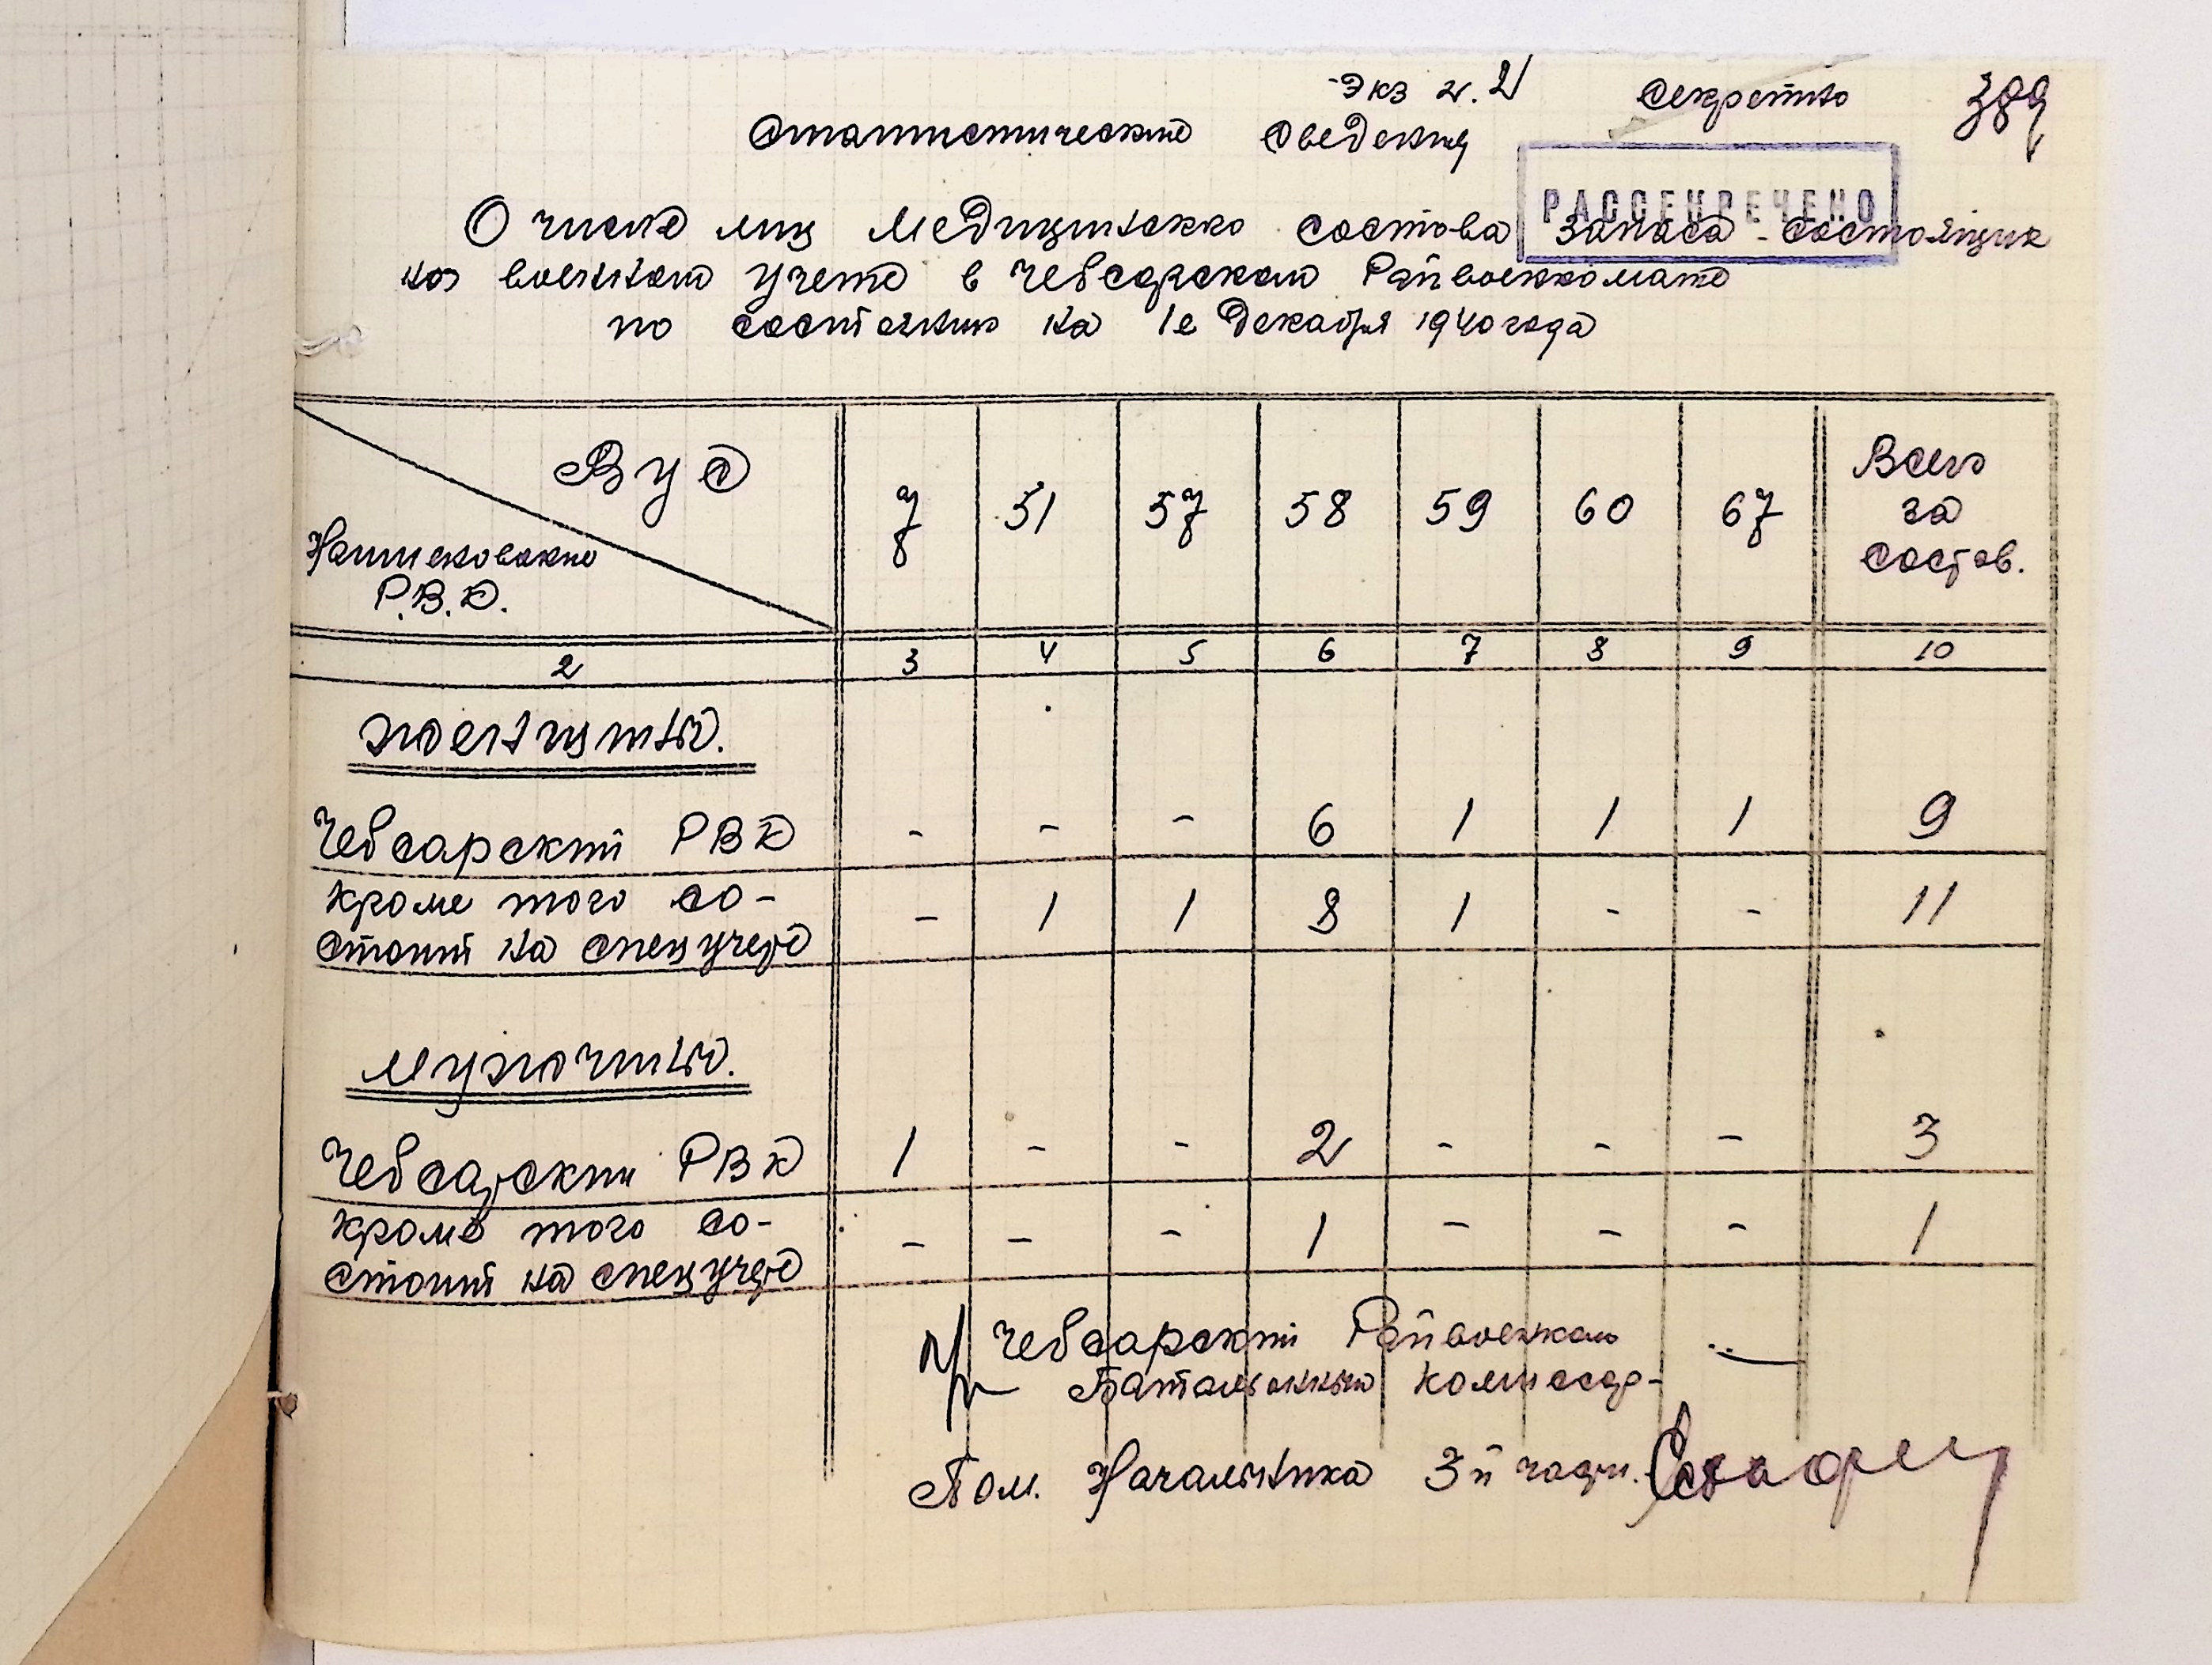 Экз №. 2
Секретно
389
Статистические сведения
РАССЕКРЕЧЕНО
О числе лиц медицинско состава запаса - состоящих
на военном учете в Чебсарском Райвоенкомате
по состоянию на 1е декабря 1940 года
ВУС
Наименование
Р.В.К.
7 51 57 58 59 60 67
8
Всего
за
состав.
2 3 4 5 6 7 8 9 10
женщины.
Чебсарский РВК - - - 6 1 1 1 9
кроме того со-
стоит на спец учете - 1 1 8 1 - - 11
мужчины.
Чебсарский РВК 1 - - 2 - - - 3
кроме того со-
стоит на спец учете - - - 1 - - - 1
Чебсарский Райвоенком
Батальонный комиссар -
Пом. Начальника 3й части.